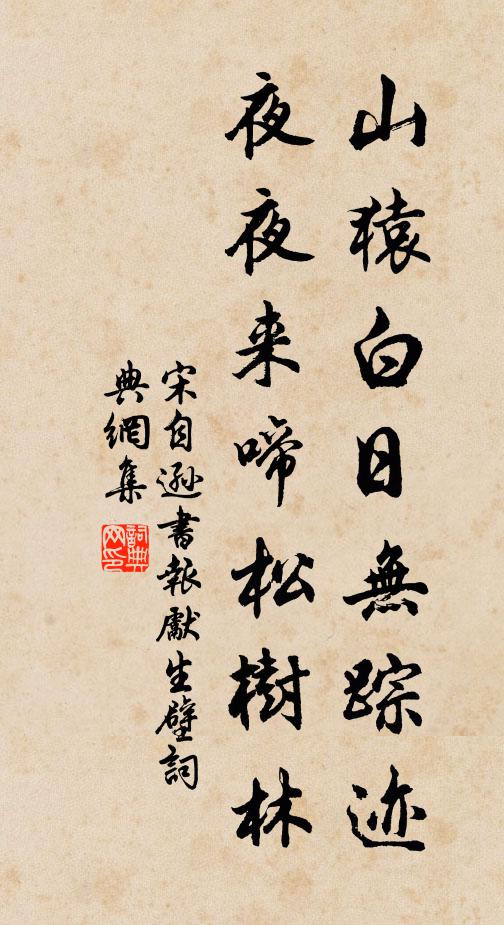 山猿白日無踪迹
夜夜来啼松樹林
宋自遜書報獻生壁詞
典網集
詞典
网印